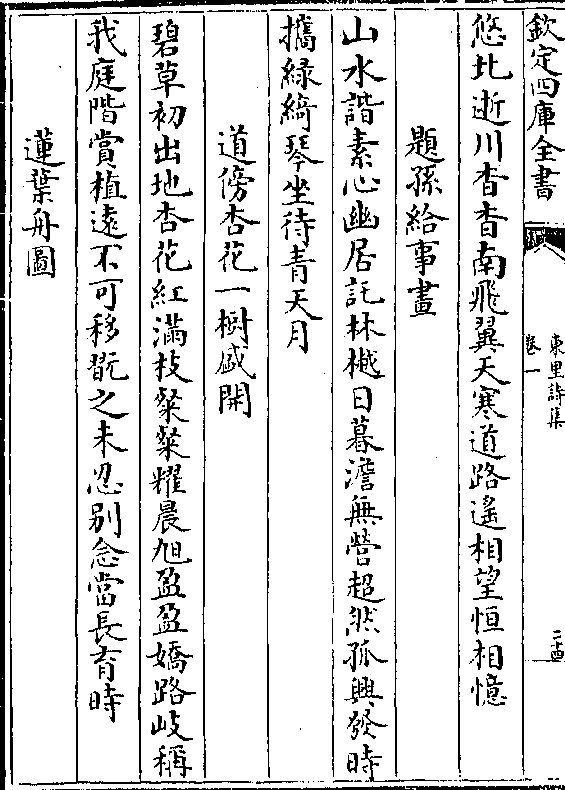 欽定四庫全書
東里詩集
卷一
二十四
悠比逝川杳杳南飛翼天寒道路遙相望恒相憶
題孫給事畫
山水諧素心幽居託林樾日暮澹無營超然孤興發時
攜緑綺琴坐待青天月
道傍杏花一樹盛開
碧草初出地杏花紅滿枝粲粲耀晨旭盈盈嬌路岐稱
我庭階賞植遠不可移翫之未忍別念當長育時
蓮葉舟圖